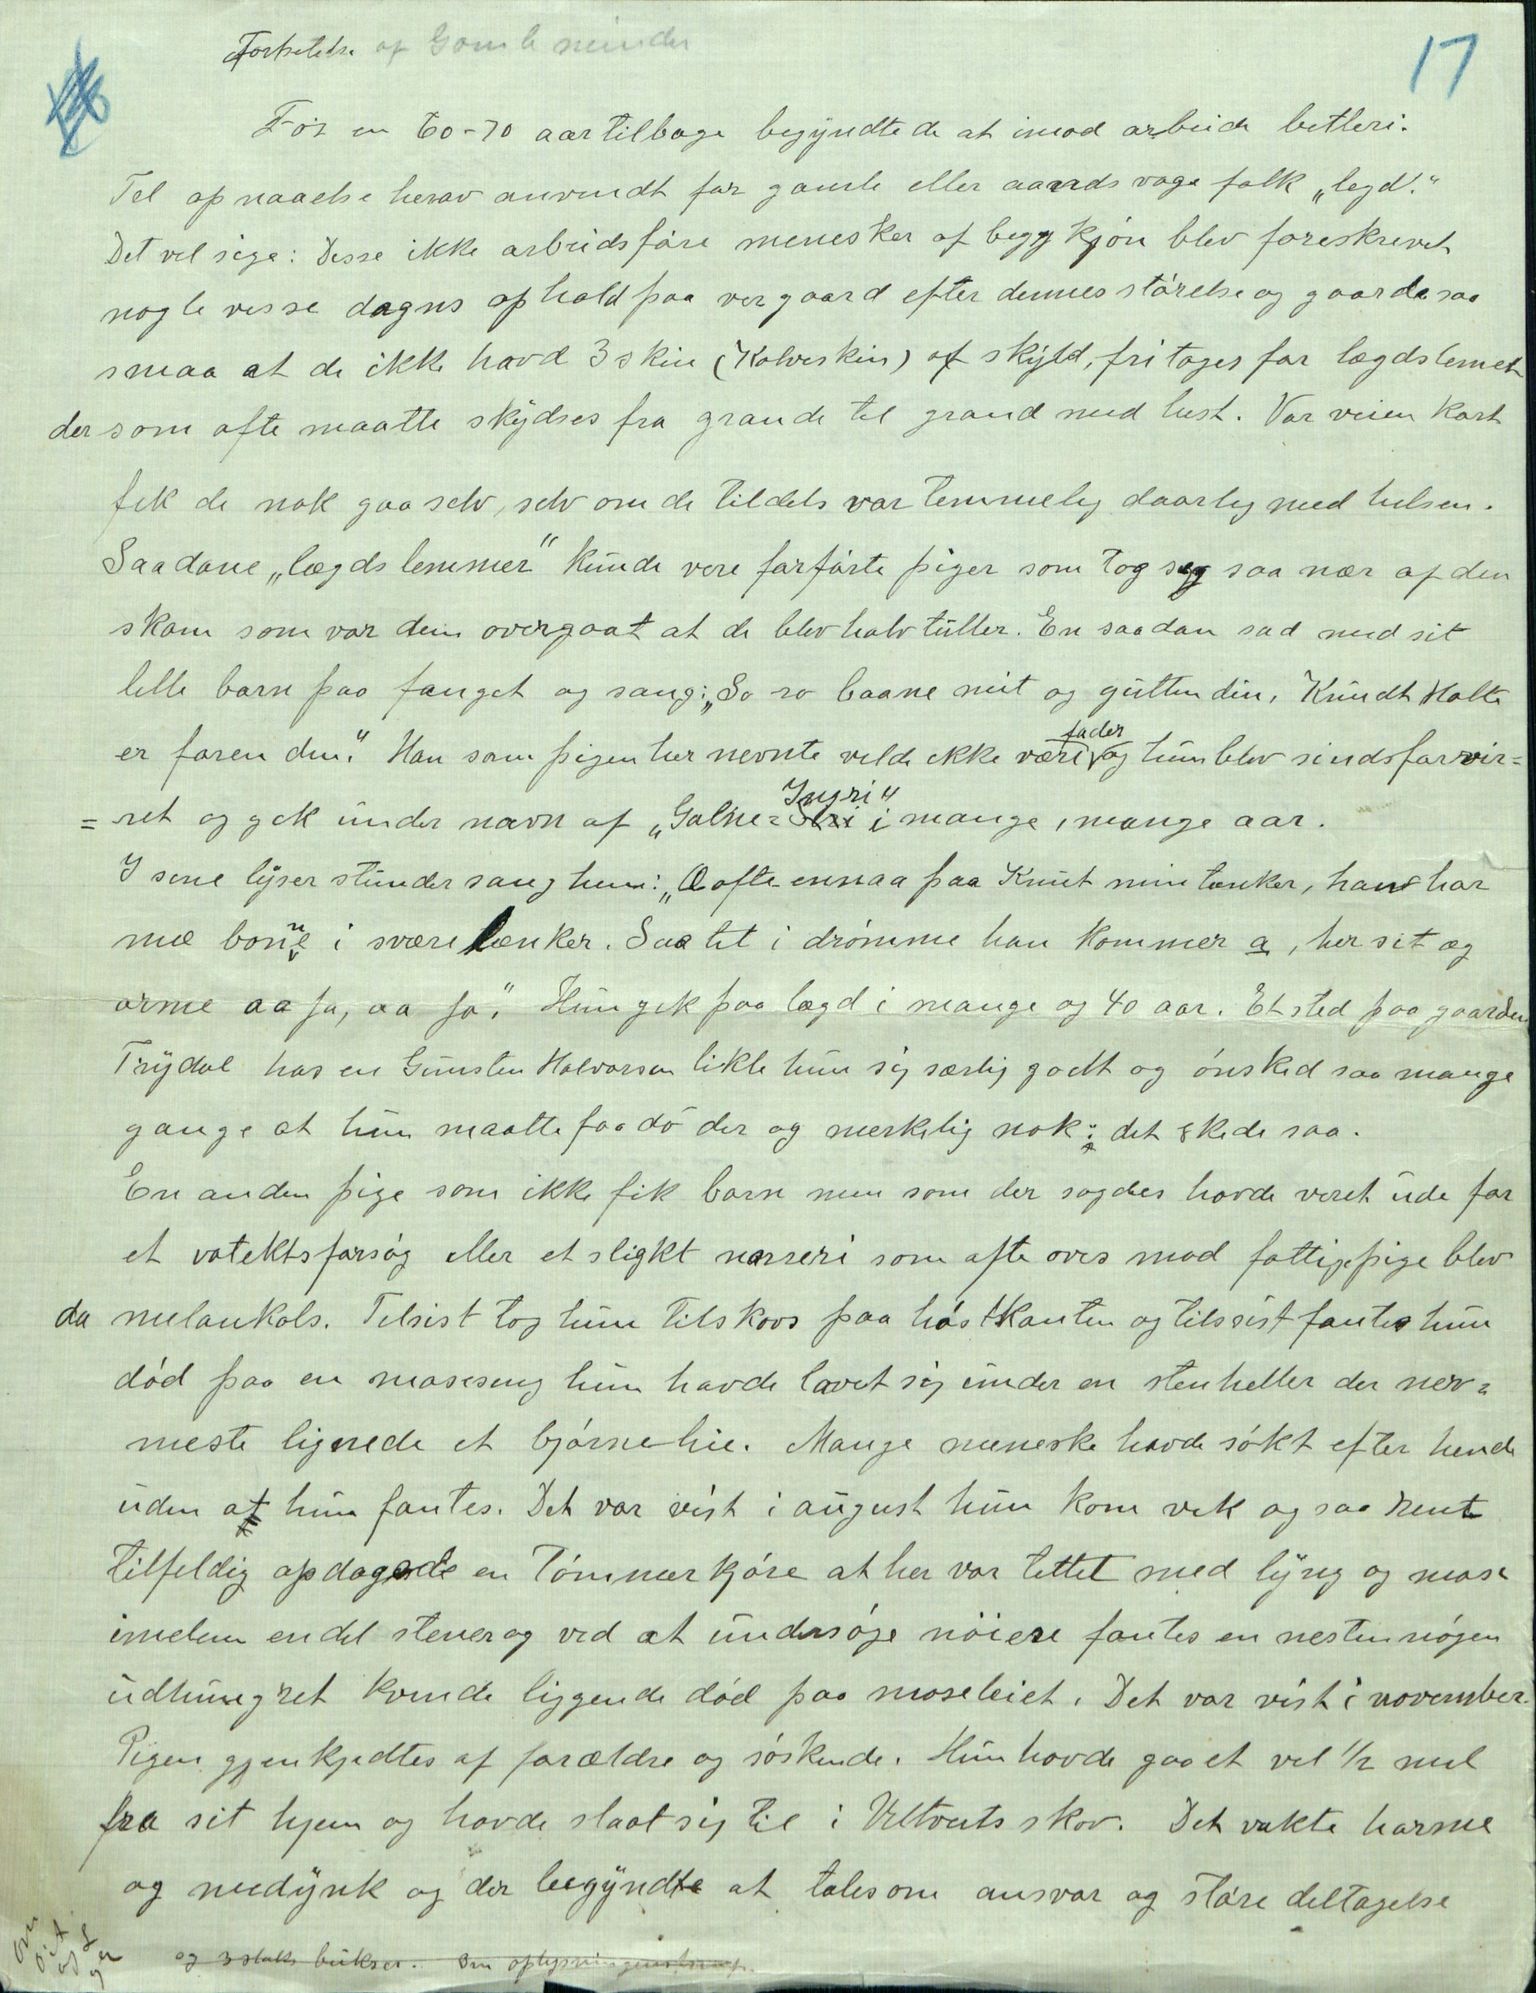 Fortsettelse af Gamle minder
17
For en 60-70 aar tilbage begyndte de at imod arbeide betleri.
Tel opnaaelse herav anvendt for gamle eller aandsvage folk „legd".
Det vel sige: Desse ikke arbeidsføre menesker af begg kjøn blev foreskrevet
nogle visse dagns ophold paa ver gaard efter dennes størelse og gaarde saa
smaa at de ikke havd 3 skin (Kalveskin) af skyld, fritages for lægdslemer
der som ofte maatte skydses fra grande til grand med hest. Var veien kort
fek de nok gaa selv, selv om de tildels var temmelig daarlig med helsen.
Saadane „lægdslemmer" kunde vere forførte piger som tog seg saa nær af den
skam som var dem overgaat at de blev halvtuller. En saadan sad med sit
lelle barn paa fanget og sang: „So ro baane mit og gutten din, Knudt Holte
er faren din". Han som pigen her nevnte velde ikke være fader og hun blev sindsforvir=
=ret og gek under navn af „Galne=Ingri" i mange, mange aar.
I sene lyser stunder sang hun: „O ofte ennaa paa Knut min tenker, han har
me bonne i svære lænker. Saa tit i drømme han kommer a, her sit æg
arme aa ja, aa ja". Hun gek paa lægd i mange og 40 aar. Et sted paa gaarden
Trydal hos en Gunsten Halvorsen likte hun sig særlig godt og ønsked saa mange
gange at hun maatte faa dø der og merkelig nok: det skede saa.
En anden pige som ikke fik barn men som der sagdes havde veret ude for
et votektsforsøg eller et sligkt narreri som ofte øves mod fattigepige blev
da melankols. Tilsist tog hun tilskovs paa høstkanten og tilssist fantes hun
død paa en moseseng hun havde lavet sig under en stenheller der ner=
meste lignede et bjørnehie. Mange meneske havde søkt efter hende
uden at hun fantes. Det var vist i august hun kom vek og saa rent
tilfeldig opdagede en Tømmerkjøre at her var tettet med lyng og mose
imelem endel stener og ved at undersøge nøiere fantes en nesten nøgen
udhungret kvinde liggende død paa moseleiet. Det var vist i november.
Pigen gjenkjedtes af forældre og søskende. Hun havde gaaet vel ½ mil
fra sit hjem og havde slaat sig til i Veltveits skov. Det vakte harme
og medynk og der begyndte at tales om ansvar og støre deltagelse
og 3 slaks bukser. Om oplysningens